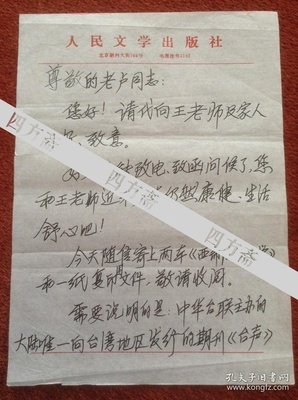 人民文学出版社
北京朝内大街166号 电报挂号2192
尊敬的老卢同志:
您好!请代向王老师及家人
致意。
致电、致函问候了,您
和王老师近 康健、生活
舒心吧!
今天随信寄上两本《
和一纸复印文件,敬请收阅。
需要说明的是:中华台联主办的
大陆唯一向台湾地区发行的期刊《台声》
四方斋
四方斋
四方斋
孔夫子旧书网